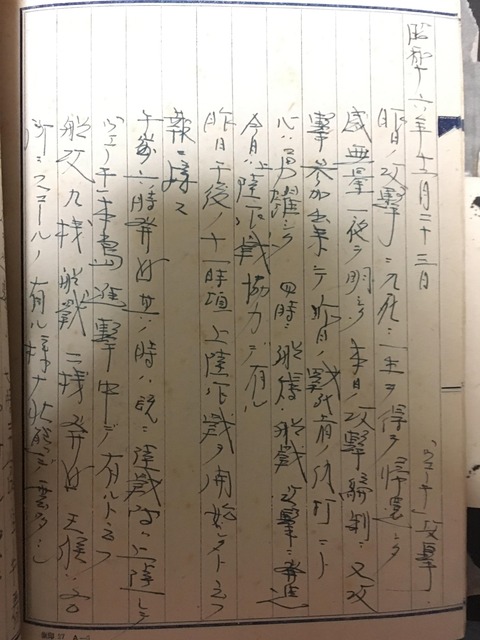 昭和十六年十二月二十三日
ウエーキ攻撃
昨日ノ攻撃ニ九死ニ一生ヲ得テ帰還シタ
感無量一夜ヲ明シ本日ノ攻撃編制ニ又攻
撃参加出来テ昨日ノ戦死者ノ仇打ニト
心ハ勇躍シ 四時ニ 艦戦 攻撃ニ発進
今日ハ上陸作戦協力デ有ル
昨日午後ノ十一時頃上陸作戦ヲ開始シタト云フ
報ニ接ス
午前六時発艦ノ時ハ既ニ陸戦隊ハ上陸シテ
ウエーキ本島進撃中デ有ルト云フ
艦攻九機艦戦三機発艦 天候ハ各
所ニスコールノ有ル様ナ状態デ雲多シ